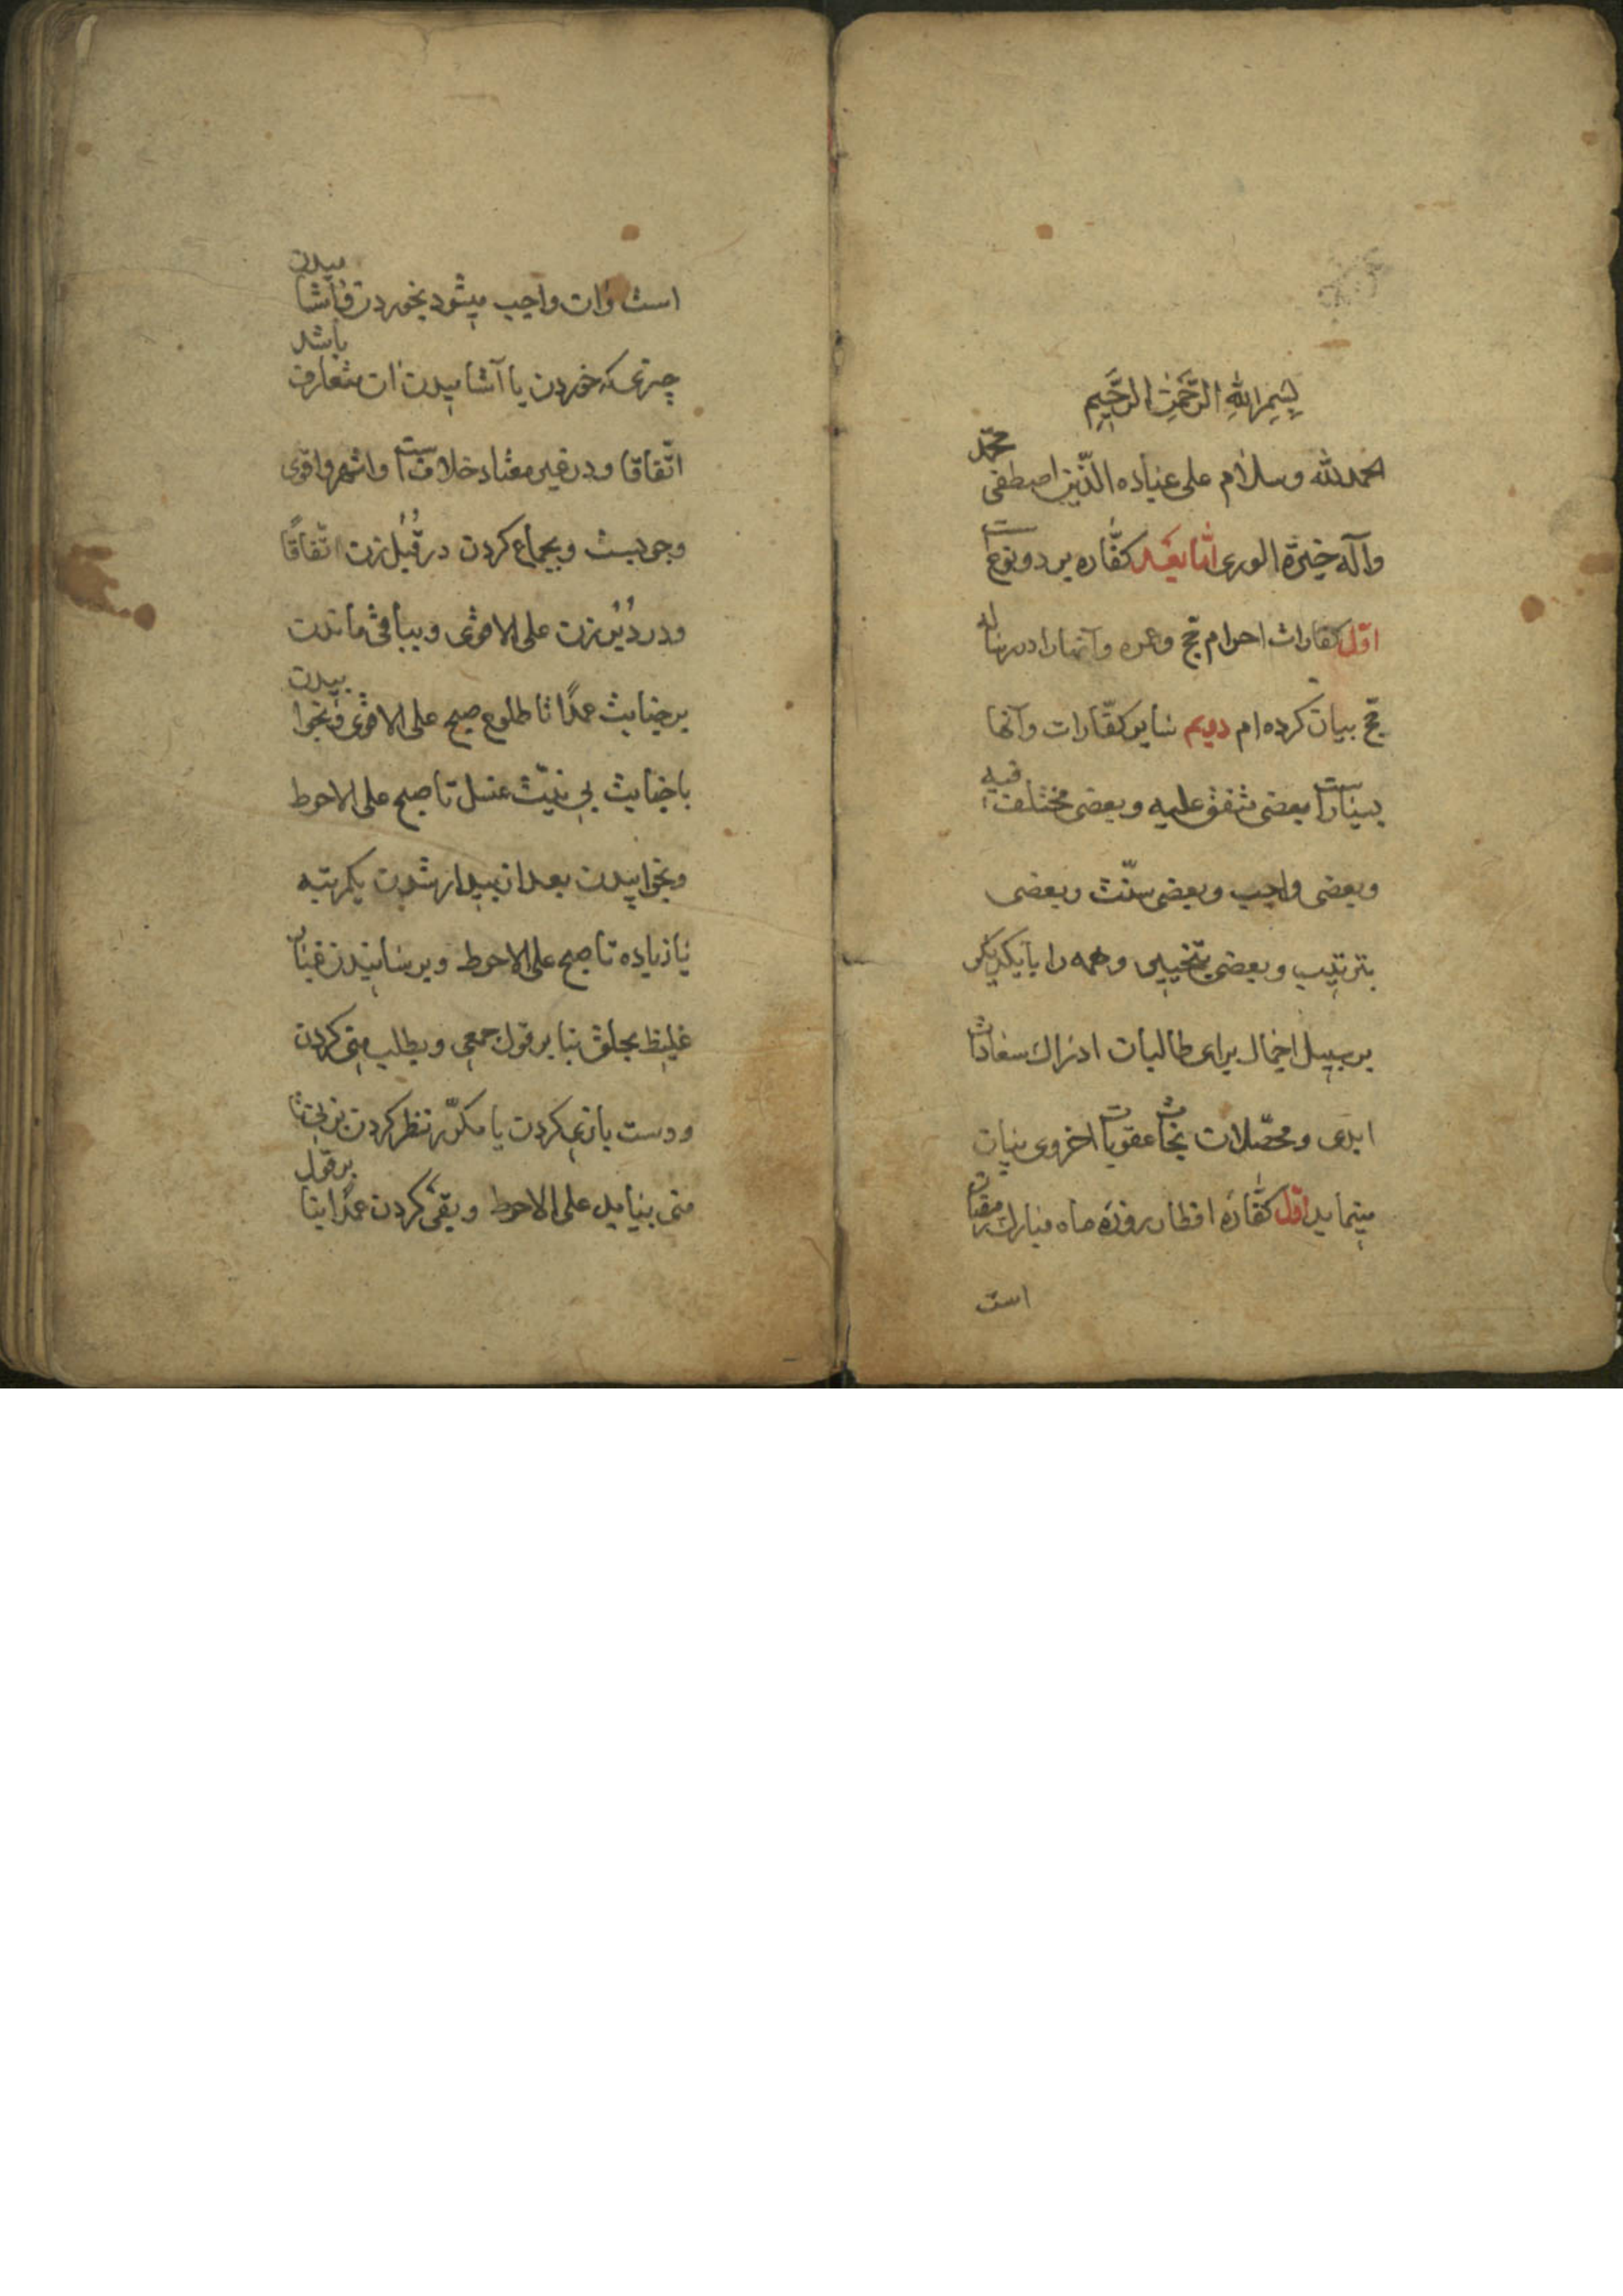 بِسْمِ اللهِ الرَّحْمٰنِ الرَّحِيْمِ
الحمدلله وسلام على عباده الّذين اصطفى محمّد
وآله خيرة الورى امّا بعد كفّاره بر دو نوع است
اوّل كفارات احرام حجّ وعمره وآنها را در رساله
حجّ بيان كرده‌ام دويم ساير كفّارات وآنها
بسيارست بعضى متفق عليه وبعضى مختلف فيه
وبعضى واجب وبعضى سنّت وبعضى
بترتيب وبعضى بتخيير وهمه را بايكديكر
بر سبيل اجمال براى طالبان ادراك سعادات
ابدى ومحصّلان نجات عقوبات اخروى بيان
مينمايد اوّل كفّارهٔ افطار روزهٔ ماه مبارك رمضان
است
است وآن واجب ميشود بخوردن وآشاميدن
چيزى كه خوردن يا آشاميدن آن متعارف باشد
اتّفاقا ودر غير معتاد خلافست واشهر واقوى
وجوبست وبجماع كردن در قُبُل زن اتّفاقًا
ودر دُبُر زن على الاقوى وبباقى ماندن
بر جنابت عمدًا تا طلوع صبح على الاقوى وبخوابيدن
با جنابت بى نيّت غسل تا صبح على الاحوط
وبخوابيدن بعد از بيدار شدن يكمرتبه
يا زياده تا صبح على الاحوط وبرسانيدن غبار
غليظ بحلق بنا بر قول جمعى وبطلب منى كردن
ودست بازى كردن يا مكرّر نظر كردن بزنى تا
منى بيايد على الاحوط وبقى كردن عمدًا بنا بر قول